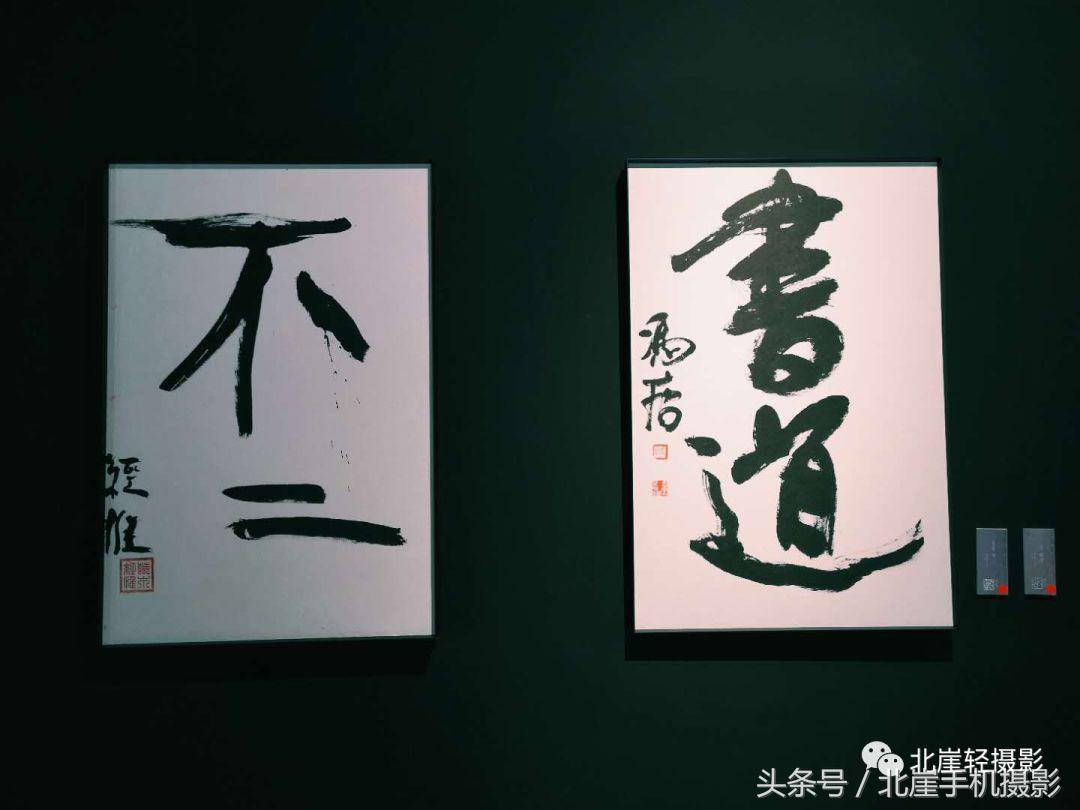 不二
書道
冯居
北崖轻摄影
头条号 / 北崖手机摄影